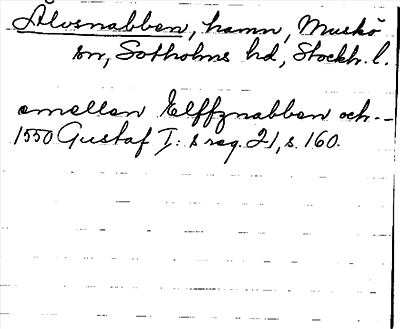 Älvsnabben, hamn, Muskö
sn, Sotholms hd, Stockh. l.
emellan Elffznabben och --
1550 Gustaf I: s reg. 21, s. 160.